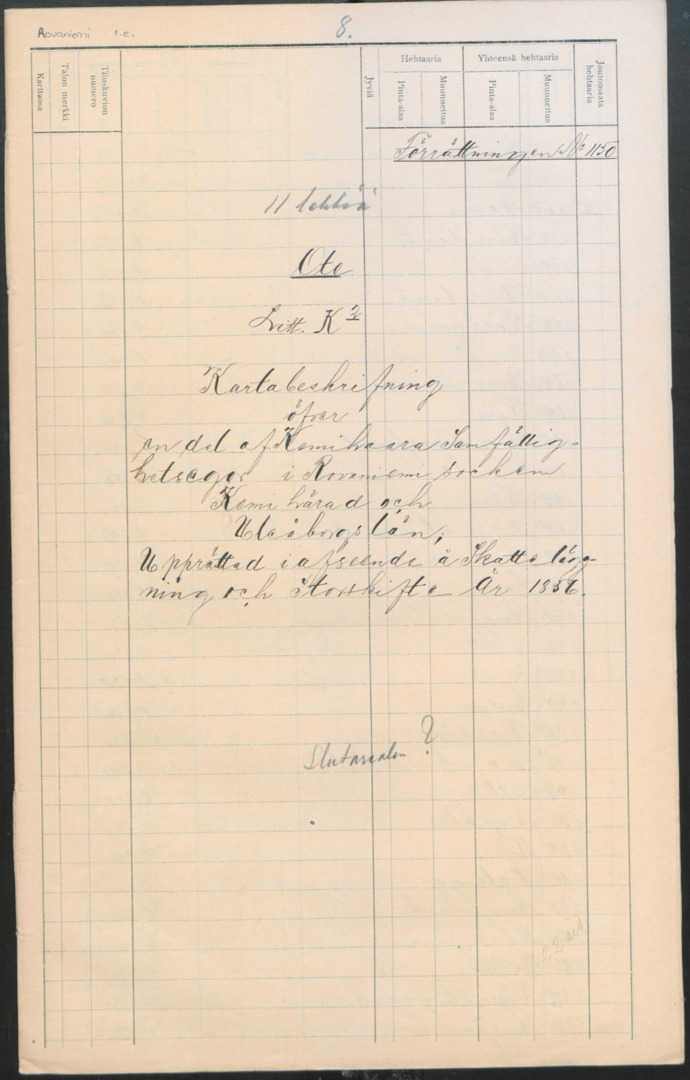 Rovaniemi r.e.
8.
Kartassa
Talon merkki
Tiluskuvion numero
Jyviä
Hehtaaria
Pinta-alaa
Muunnettua
Yhteensä hehtaaria
Pinta-alaa
Muunnettua
Joutomaata hehtaaria
Förrättningen № 1130
11 lehteä
Ote
Litt. K
Kartabeskrifning
öfver
en del af Kemihaara Samfällig-
hetsegor i Rovaniemi socken
Kemi härad och
Uleåborgs län,
Upprättad i afseende å Skattlägg-
ning och Storskifte År 1856.
?